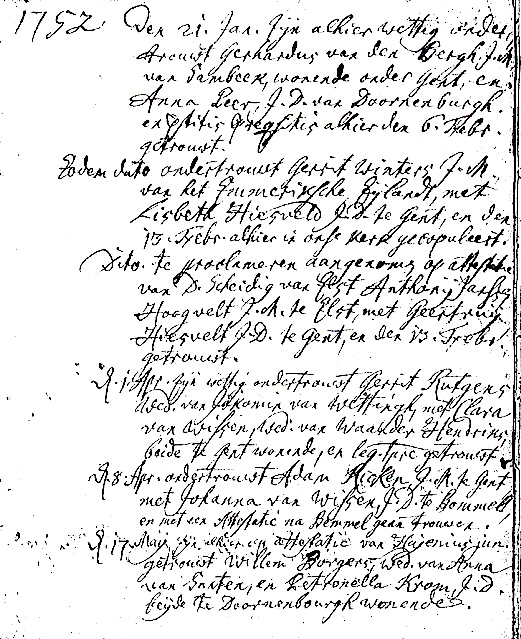 1752. Den 21. Jan. sijn alhier wettig onder,
trouwt Gerhardus van den Bergh, J.M.
van Sambeek, wonende onder Gent, en
Anna Peer, J.D. van Doornenburgh.
en alhier den 6. Febr.
getrouwt.
Eodem dato ondertrouwt Gerrit Winters J.M.
van het Emmerische Eylandt, met
Lisbeth Hiesveld J.D. te Gent, en den
13. Febr. alhier in onse kerk gecopuleert.
Dito. te proclameren aangenomen op attestatie
van D. Scheidig van Elst Anthonij Jansse
Hoogvelt J.M. te Elst, met Geertruij
Hiesvelt J.D. te Gent, en den 13. Febr.
getrouwt.
D. 1. Apr. sijn wettig ondertrouwt Gerrit Rutgens
Wed. van van Wettingh, met Clara
van Wissen, Wed. van Waander Hendrins
beide te Gent wonende, en getrouwt
D. 8. Apr. ondertrouwt Adam Ricken, J.M. te Gent
met Johanna van Wissen, J.D. te Bommel
en met een Attestatie na Bemmel gaan trouwen.
D. 17. Maij sijn alhier op attestatie van Hajenius jun.
getrouwt Willem Borgers, Wed. van Anna
van Santen, en Petronella Krom, J.D.
beijde te Doornenbourgh wonende.